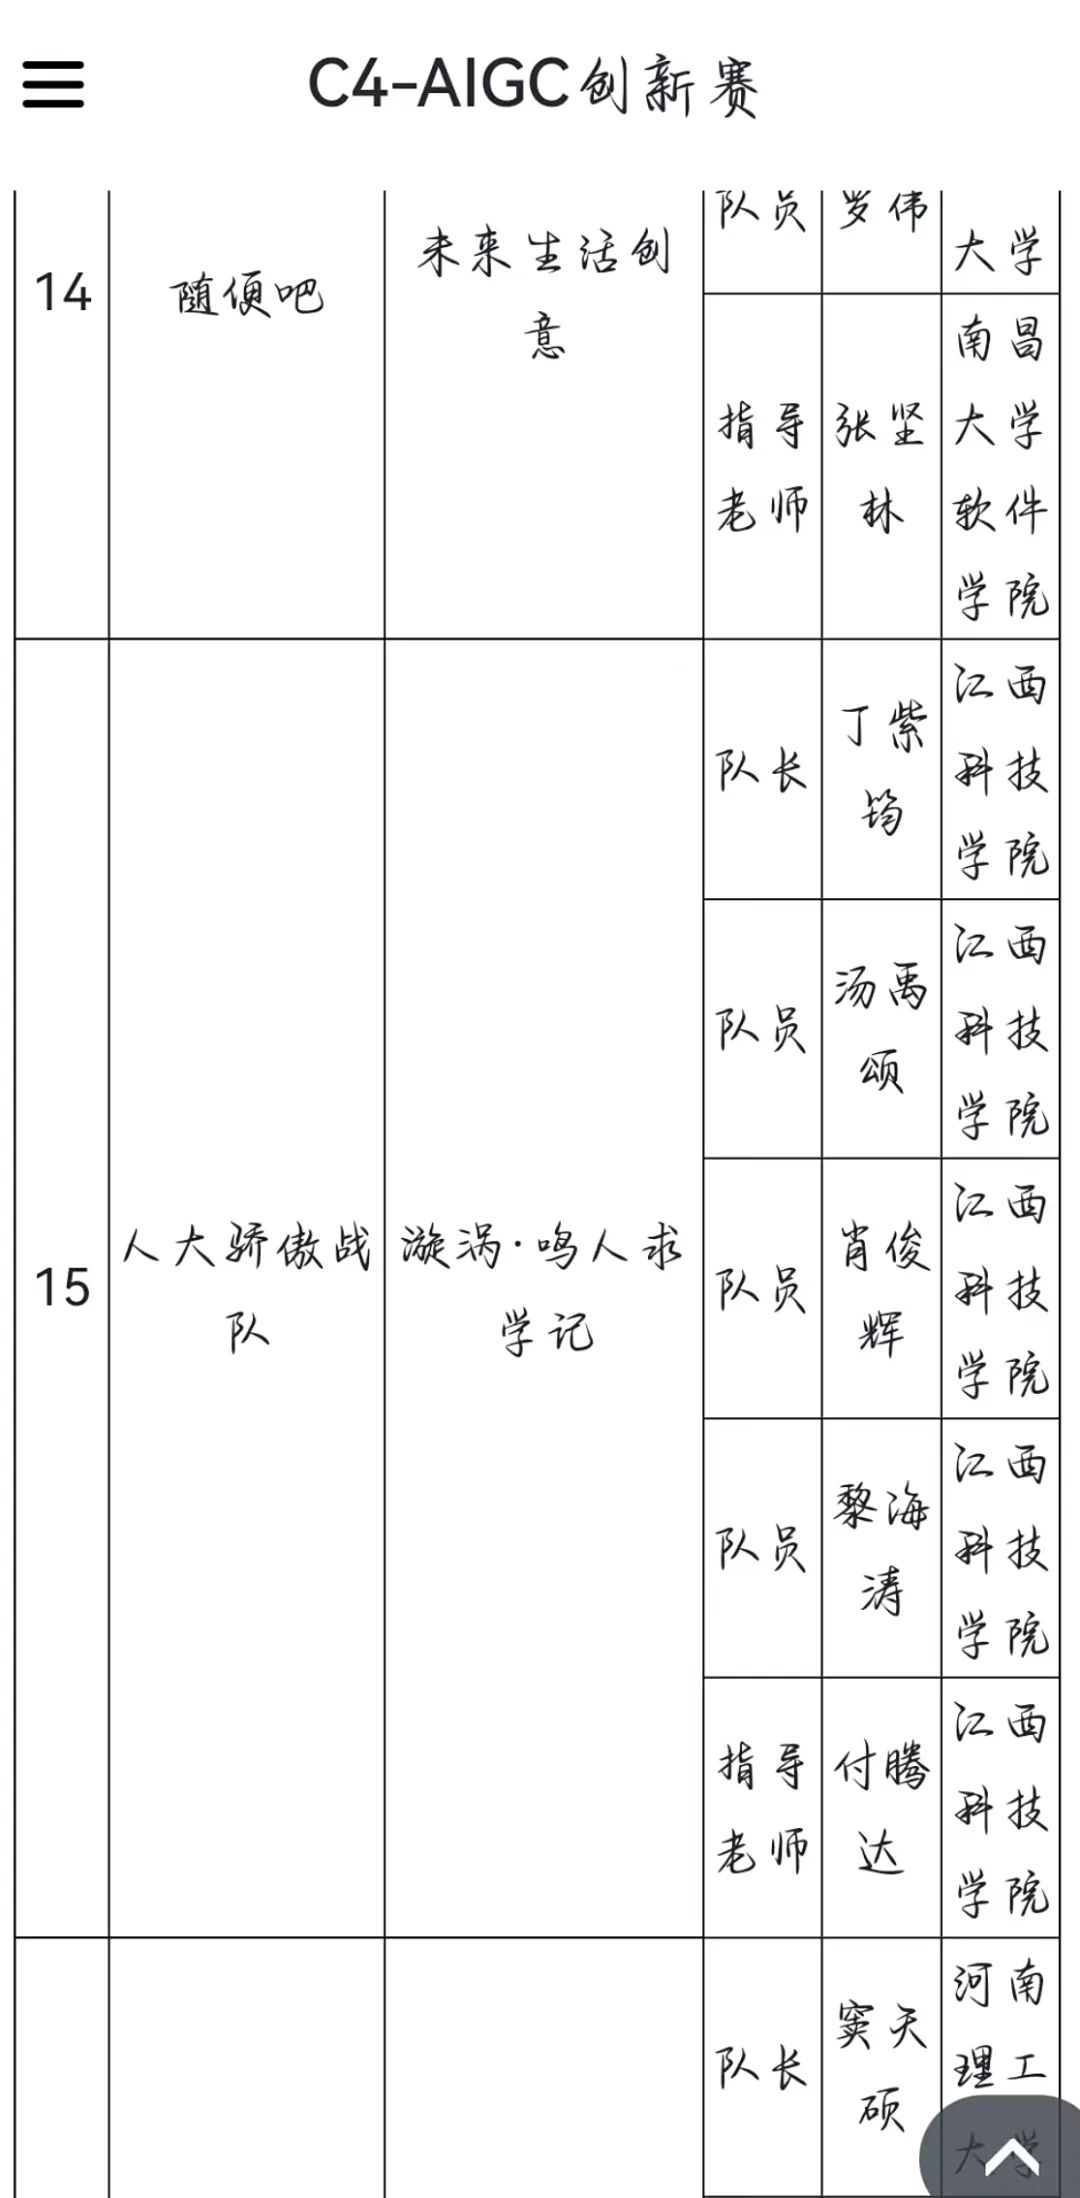 C4-AIGC创新赛
14
随便吧
未来生活创
意
队员
罗伟
大学
指导
老师
张坚
林
南昌
大学
软件
学院
15
人大骄傲战
队
漩涡·鸣人求
学记
队长
丁紫
筠
江西
科技
学院
队员
汤禹
颂
江西
科技
学院
队员
肖俊
辉
江西
科技
学院
队员
黎海
涛
江西
科技
学院
指导
老师
付腾
达
江西
科技
学院
队长
窦天
硕
河南
理工
大学